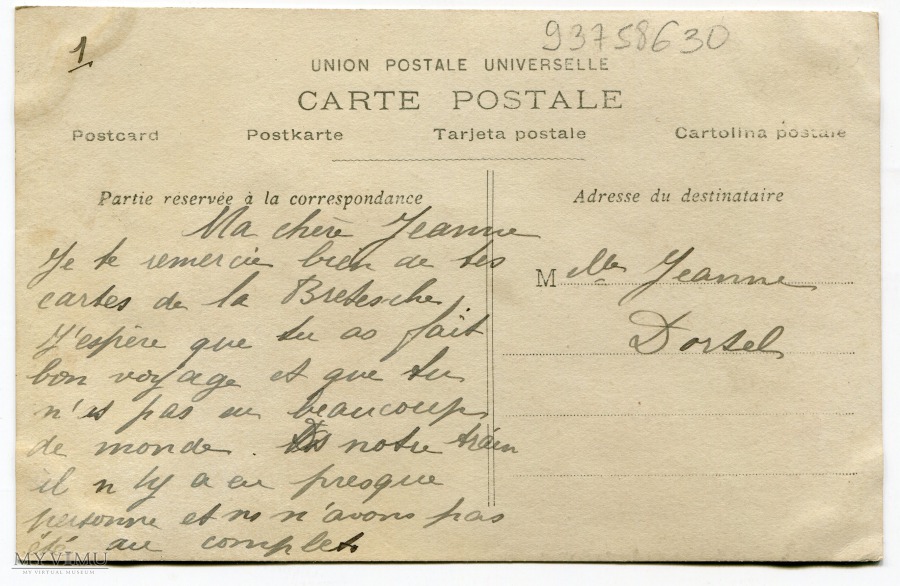 1
93758630
UNION POSTALE UNIVERSELLE
CARTE POSTALE
Postcard Postkarte Tarjeta postale Cartolina postale
Partie réservée à la correspondance
Ma chère Jeanne
Je te remercie bien de tes
cartes de la Bretesche
J'espère que tu as fait
bon voyage et que tu
n'as pas eu beaucoup
de monde. Ds notre train
il n'y a eu presque
personne et ns n'avons pas
été au complet
Adresse du destinataire
Melle Jeanne
Dortel
MYVIMU
MY VIRTUAL MUSEUM